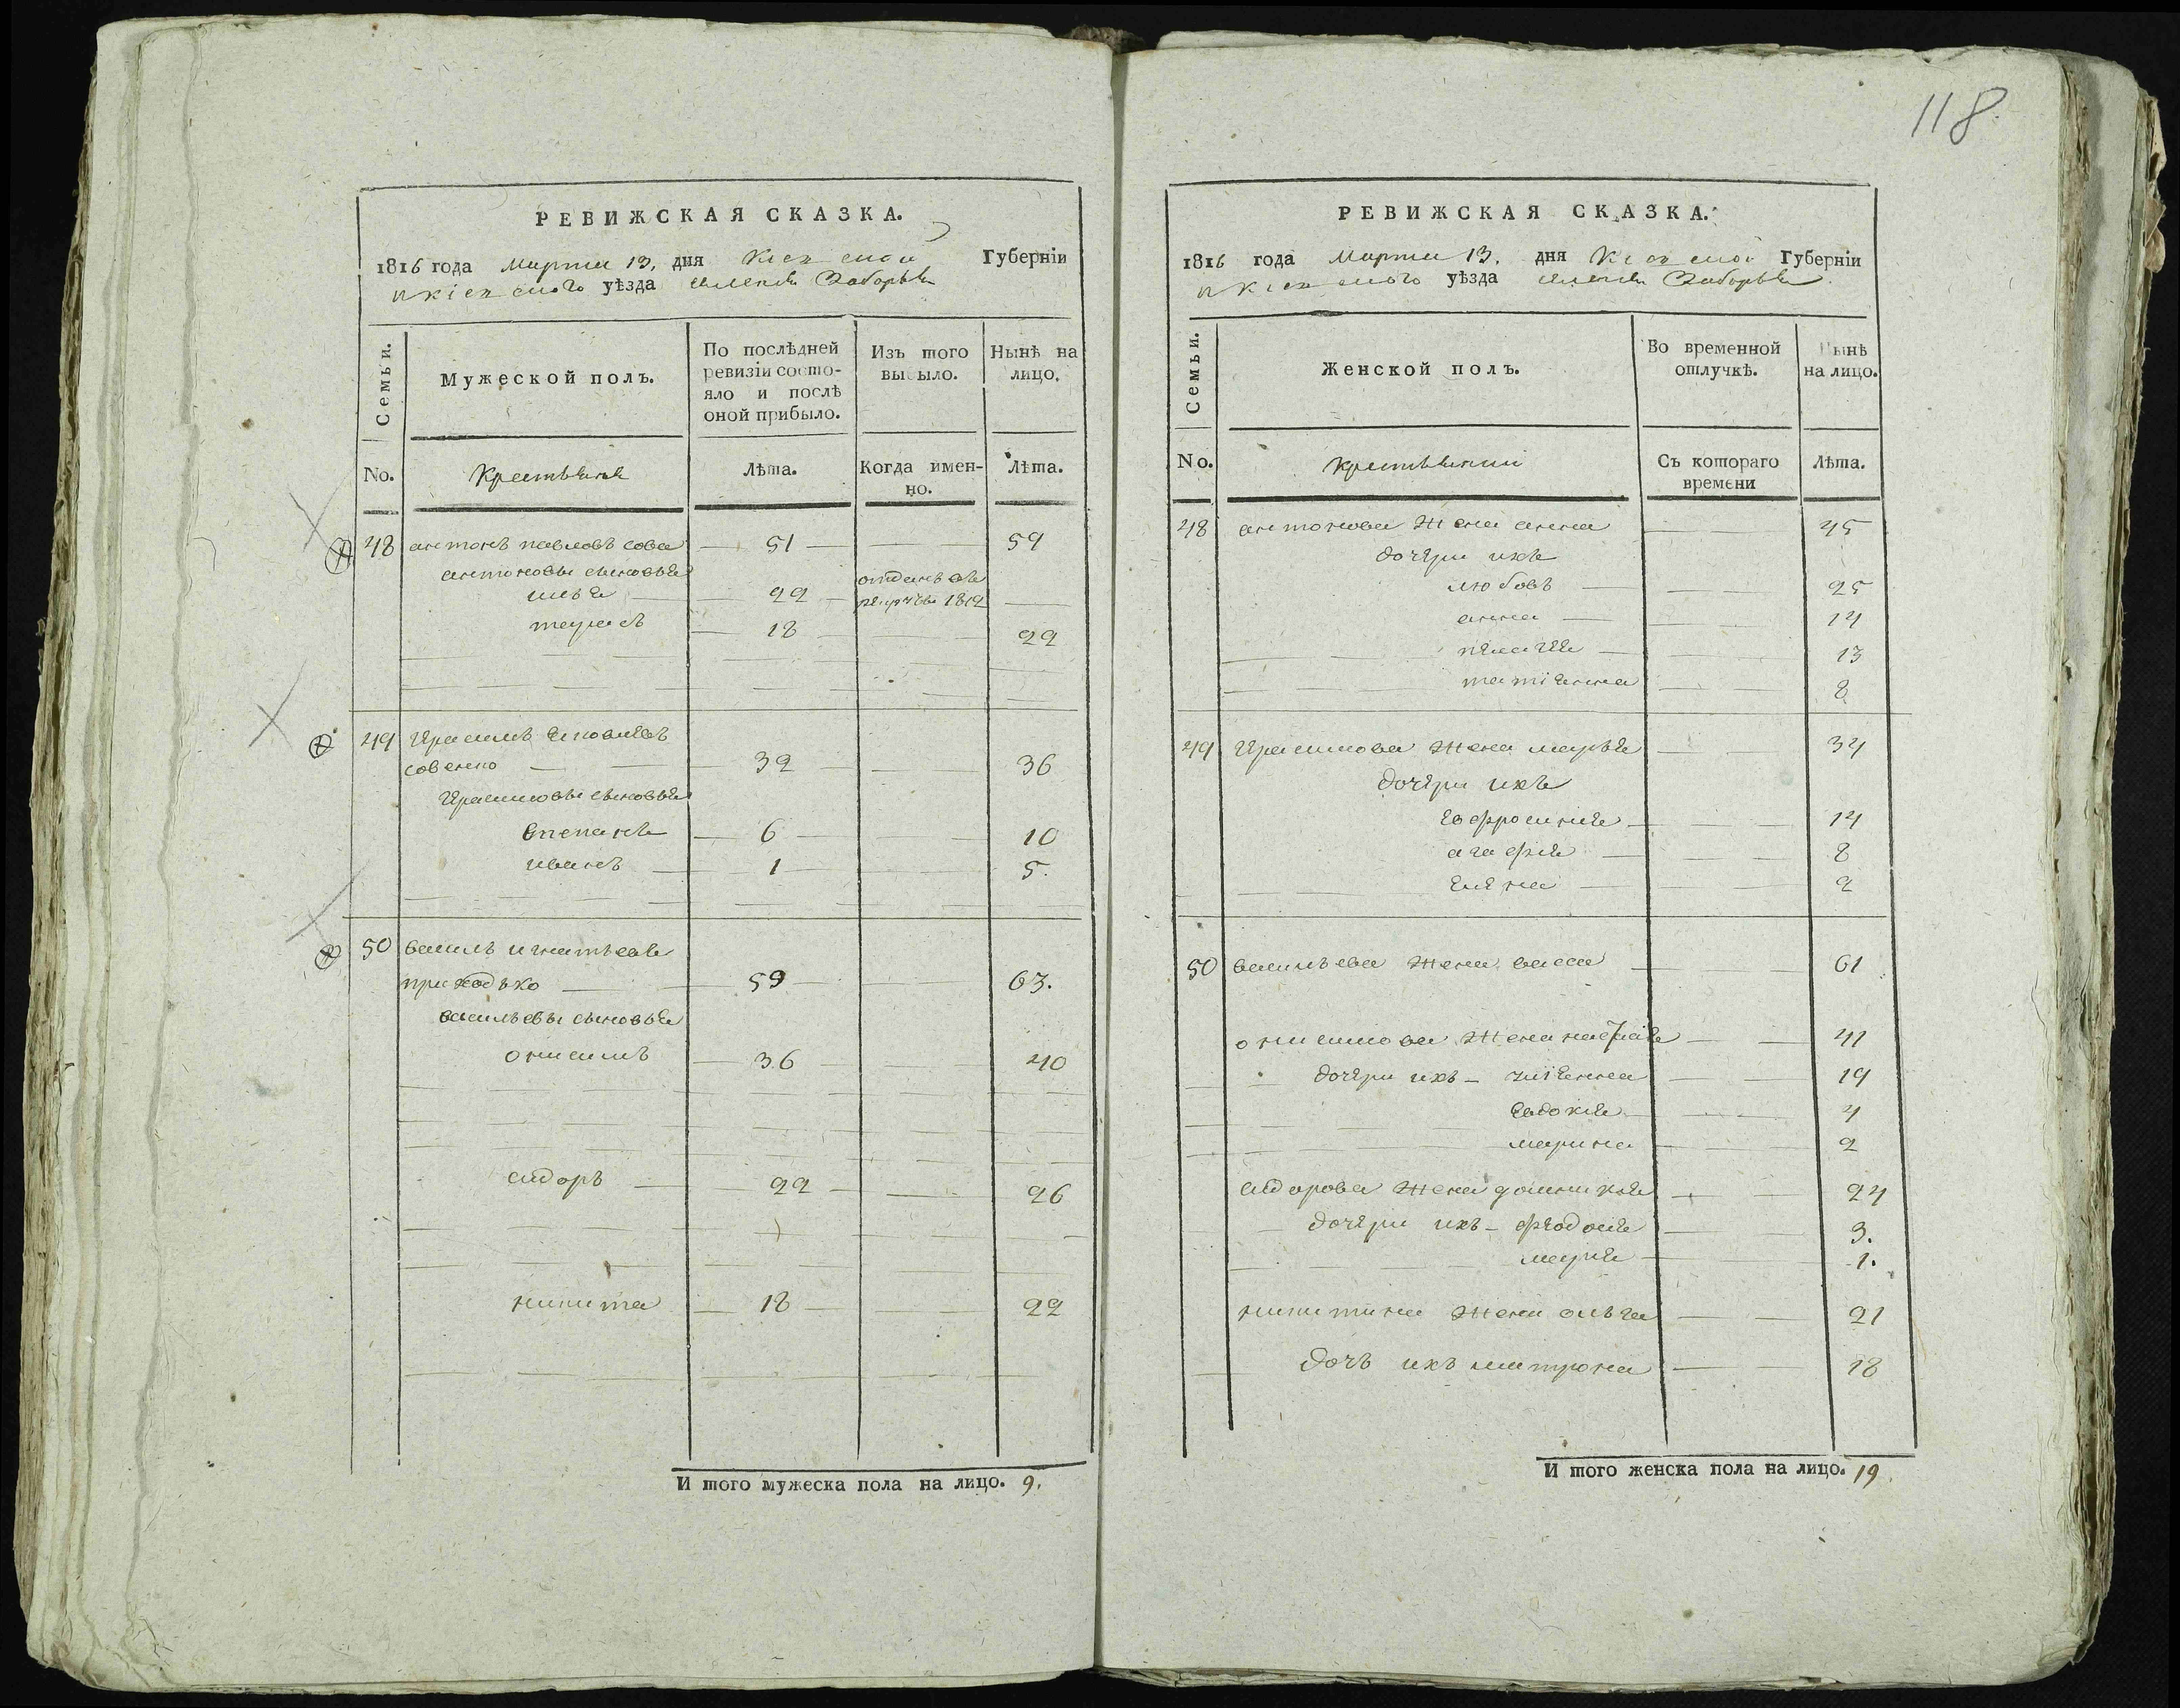 118.
РЕВИЖСКАЯ СКАЗКА.
1816 года марта 13, дня Кіевской Губерніи
и кіевского уѣзда селенія Заборья
Семьи.
Мужеской полъ.
По послѣдней ревизіи состояло и послѣ оной прибыло.
Изъ того выбыло.
Нынѣ на лицо.
No.
Крестьяне
Лѣта.
Когда именно.
Лѣта.
48 антонъ павловъ сова — 51 — — 59
антоновы сыновья
илья — 22 — отданъ въ рекруты 1812 —
тарасъ — 18 — — 22
49 Герасимъ Яковлевъ
совенко — 32 — — 36
Герасимовы сыновья
Степанъ — 6 — — 10
иванъ — 1 — — 5.
50 василь игнатьевъ
приходько — 59 — — 63.
васильевы сыновья
онисимъ — 36 — — 40
сидоръ — 22 — — 26
никита — 18 — — 22
И того мужеска пола на лицо. 9.
РЕВИЖСКАЯ СКАЗКА.
1816 года марта 13. дня Кіевской Губерніи
и кіевского уѣзда селенія Заборья
Семьи.
Женской полъ.
Во временной отлучкѣ.
Нынѣ на лицо.
No.
Съ котораго времени
Лѣта.
48 антонова жена анна — — 45
дочери ихъ
любовь — — 25
анна — — 14
пелагея — — 13
татіянна — — 8
49 Герасимова жена марья — — 34
дочери ихъ
Евфросинія — — 14
агафія — — 8
Елена — — 2
50 васильева жена васса — — 61
онисимова жена настасія — — 41
дочери ихъ — — — 19
Евдокія — — 4
марина — — 2
сидорова жена домникія — — 24
дочери ихъ — феодосія — — 3.
марія — — 1.
никитина жена ольга — — 21
дочь ихъ матрона — — 18
И того женска пола на лицо. 19.